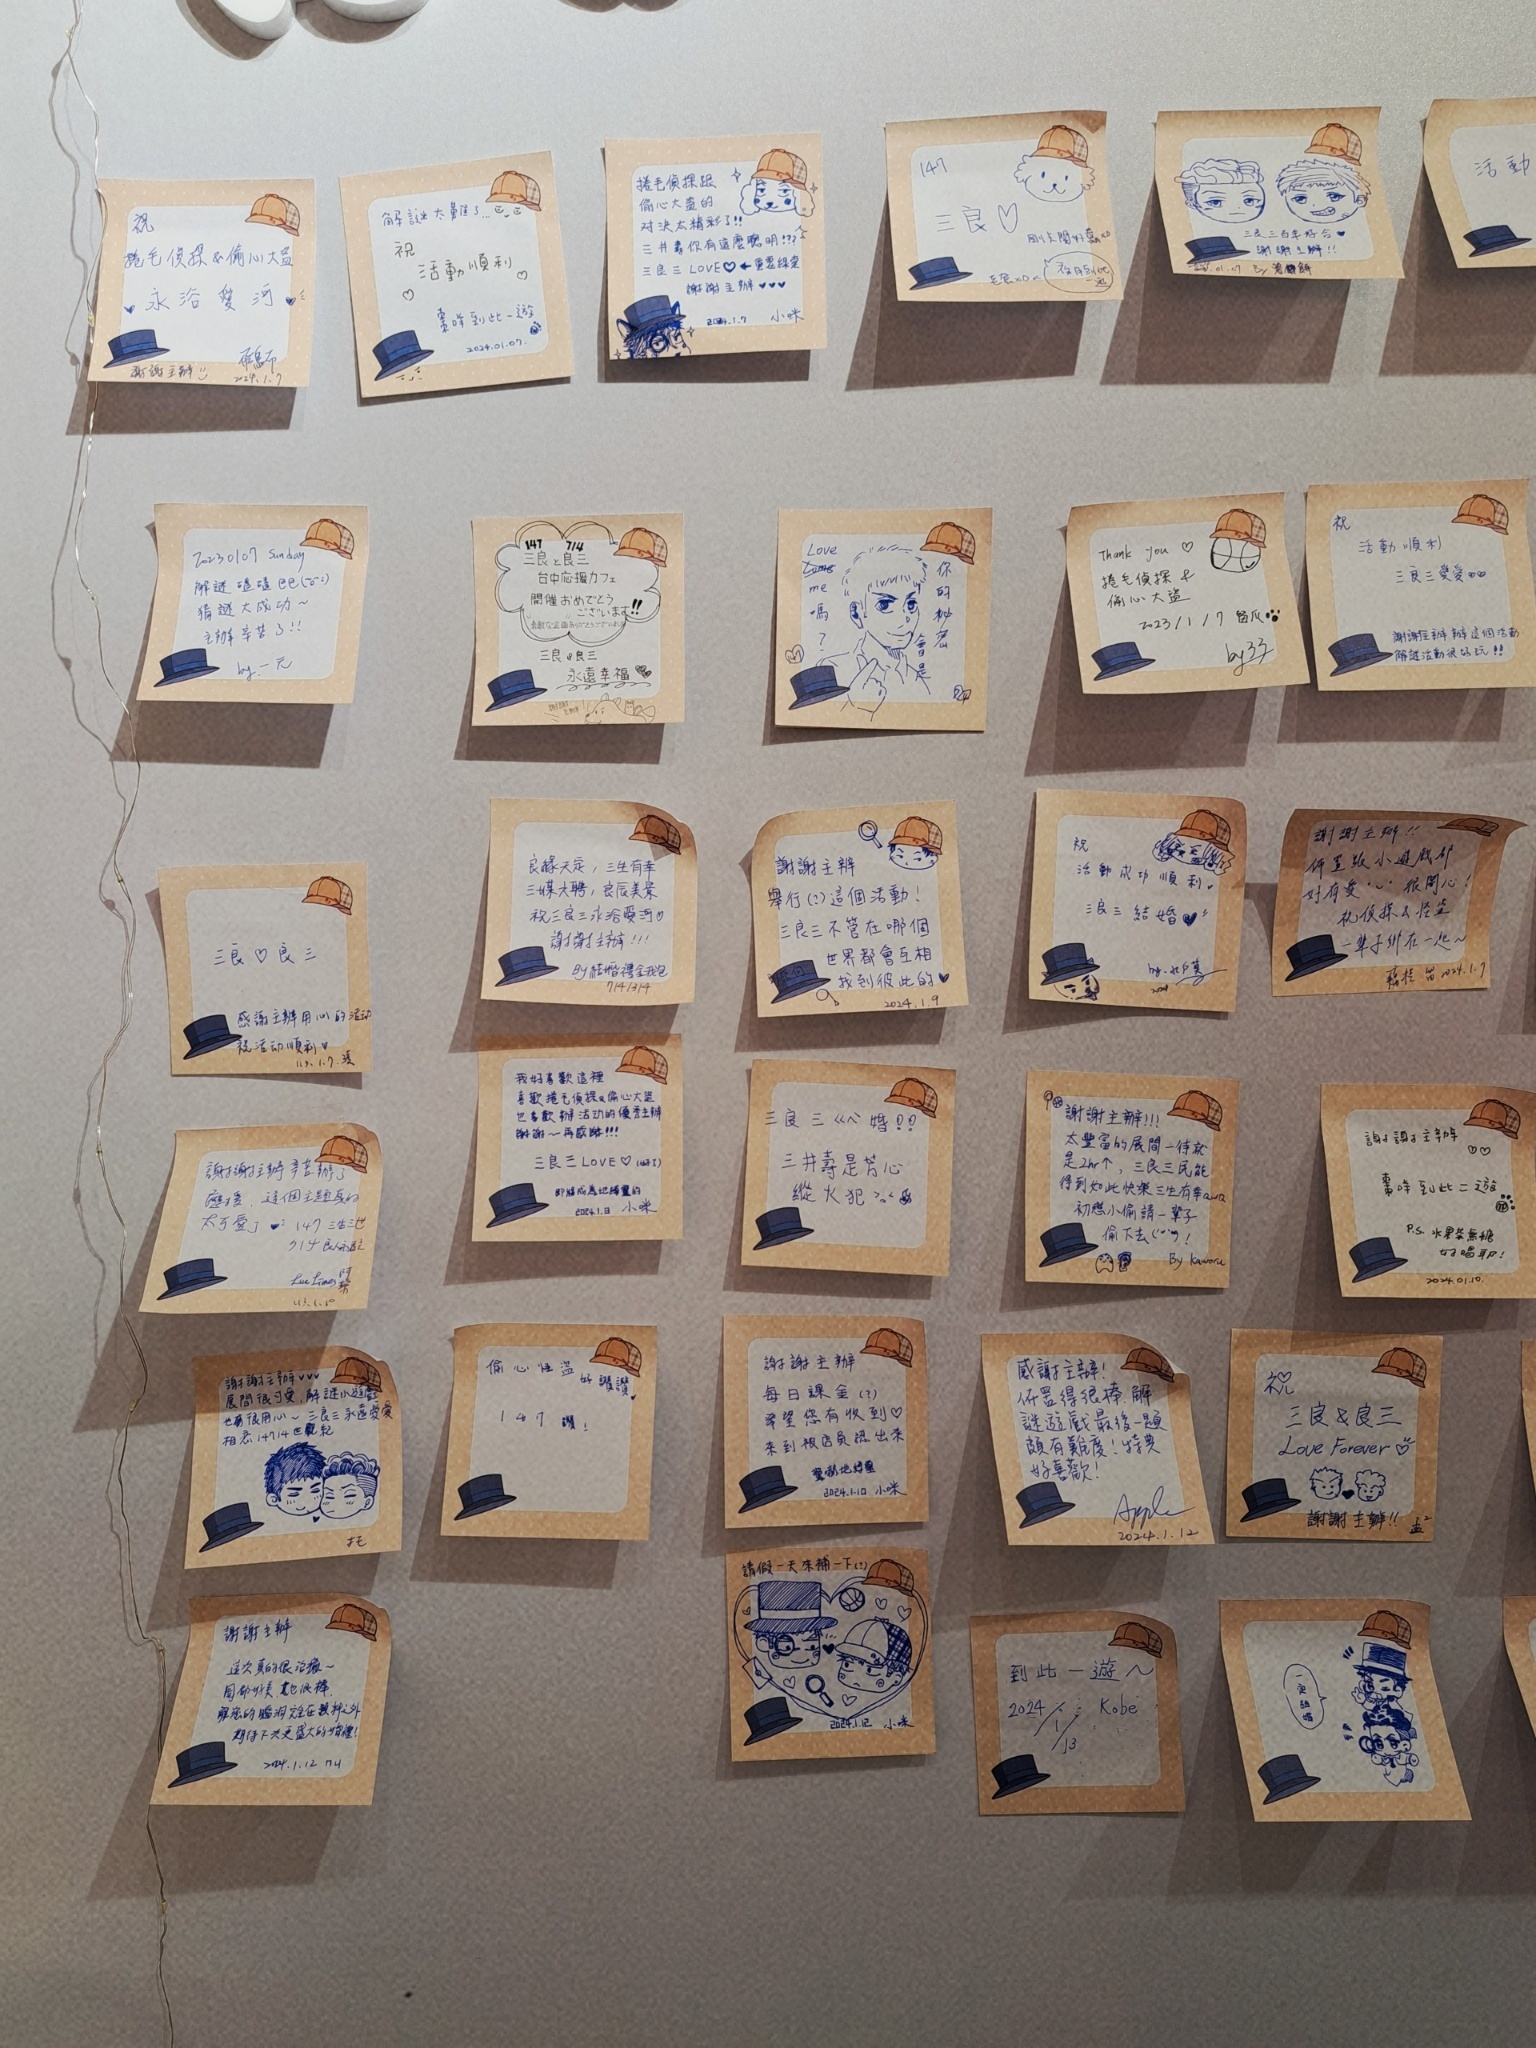 祝
捲毛偵探&偷心大盜
永浴愛河
謝謝主辦
2024.1.7
解謎太難了...
祝
活動順利
棗咩到此一遊
2024.01.07.
捲毛偵探跟
偷心大盜的
對決太精彩了!!
三井壽你有這麼聰明!??
三良三 LOVE♡←重要線索
謝謝主辦♥♥♥
2024.1.7 小咪
147
三良♡
三良三百年好合♥
謝謝主辦!!
活動
20230107 Sunday
解謎磕磕巴巴
猜謎大成功~
主辦辛苦了!!
by.一元
147 7/4
三良と良三
台中応援カフェ
開催おめでとう
ございます!!
三良&良三
永遠幸福
Love
me
嗎?
你的秘密
會是
Thank you ♡
捲毛偵探&
偷心大盜
2023/1/7
祝
活動順利
三良三愛愛
謝謝主辦辦這個活動
解謎活動很好玩!!
三良♡良三
感謝主辦用心的活动
祝活动順利♥
良緣天定,三生有幸
三媒六聘,良辰美景
祝三良三永浴愛河♡
謝謝主辦!!!
By 結婚禮金我包
謝謝主辦
舉行(?)這個活動!
三良三不管在哪個
世界都會互相
找到彼此的♥
2024.1.9
祝
活動成功順利。
三良三結婚♥
謝謝主辦!!
佈置跟小遊戲都
好有愛 很開心!
祝偵探&怪盜
一輩子綁在一起~
2024.1.7
謝謝主辦辛苦辦了
應援,這個主題真的
太可愛了♥ 147三生三世
我好喜歡這裡
喜歡捲毛偵探&偷心大盜
也喜歡辦活动的優秀主辦
謝謝~再感謝!!!
三良三LOVE♡
即將成為地縛靈的
小咪
三良三ㄍㄟ婚!!
三井壽是芳心
縱火犯
謝謝主辦!!!
太豐富的展間一待就
是2hr↑,三良三民能
得到如此快樂三生有幸
初戀小偷請一輩子
偷下去!
By kaworu
謝謝主辦
棗咩到此二遊
P.S.水果茶無糖
好喝耶!
2024.01.10.
謝謝主辦♥♥♥
展間很可愛,解謎小遊戲
也有很用心~三良三永遠愛愛
偷心怪盜
好讚讚
147讚!
謝謝主辦
每日課金(?)
希望您有收到♡
來到被店員認出來
2024.1.10 小咪
感謝主辦!
佈置得很棒.解
謎遊戲最後一題
頗有難度!特典
好喜歡!
Apple
2024.1.12
祝
三良&良三
Love Forever♡
謝謝主辦!!
謝謝主辦
這次真的很治癒~
期待下次更盛大的婚禮!
2024.1.12
請假一天來補一下(?)
2024.1.12 小咪
到此一遊~
2024/1/13 Kobe